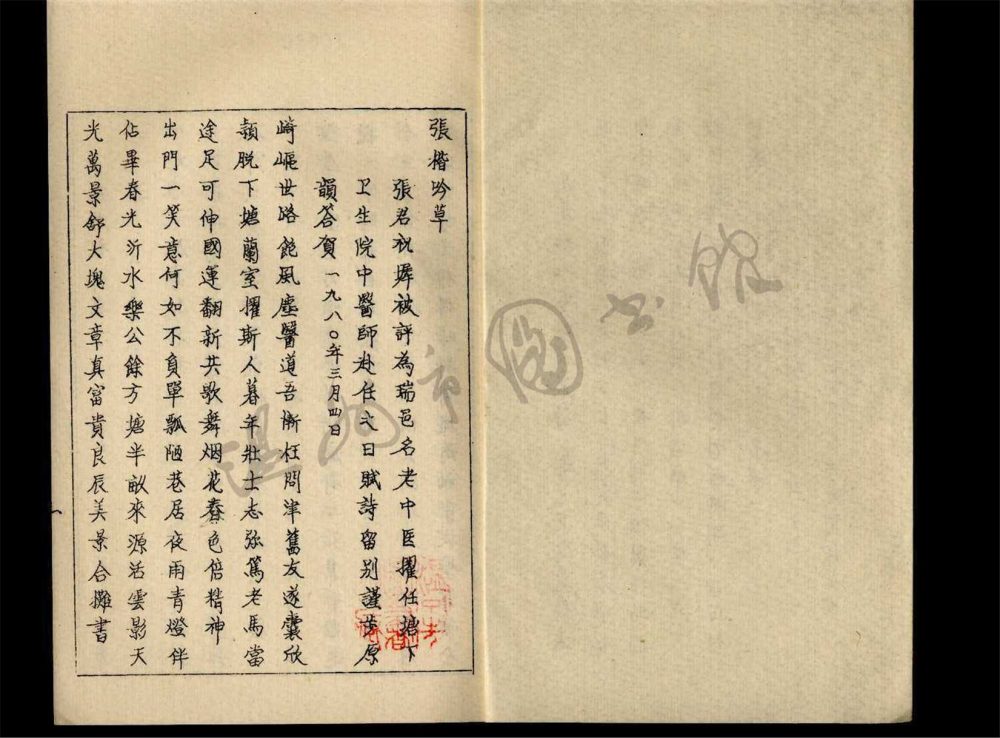 張楷吟草
張君祝墀被評為瑞邑名老中医擢任塘下
卫生院中醫師赴任之日賦詩留别謹步原
韻答賀一九八〇年三月四日
崎嶇世路飽風塵醫道吾慚枉問津舊友遂囊欣
穎脱下塘蘭室擢斯人暮年壯士志弥篤老馬當
途足可伸國運翻新共歌舞烟花春色倍精神
出門一笑意何如不負單瓢陋巷居夜雨青燈伴
佔畢春光沂水樂公餘方塘半畝來源活雲影天
光萬景舒大塊文章真富貴良辰美景合攤書
温州市圖书館